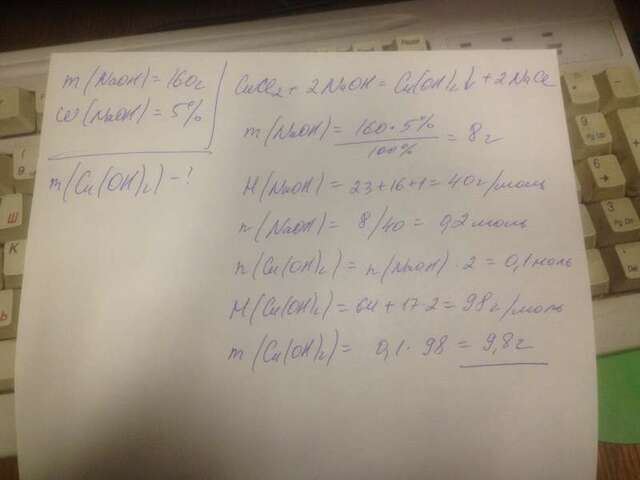 m(NaOH)=160г
ω(NaOH)=5%
m(Cu(OH)₂)-?
CuCl₂+2NaOH=Cu(OH)₂↓+2NaCl
m(NaOH)=160·5%/100%=8г
M(NaOH)=23+16+1=40г/моль
n(NaOH)=8/40=0,2моль
n(Cu(OH)₂)=n(NaOH)·2=0,1моль
M(Cu(OH)₂)=64+17·2=98г/моль
m(Cu(OH)₂)=0,1·98=9,8г
Пауза
Ш
К
9
6
3